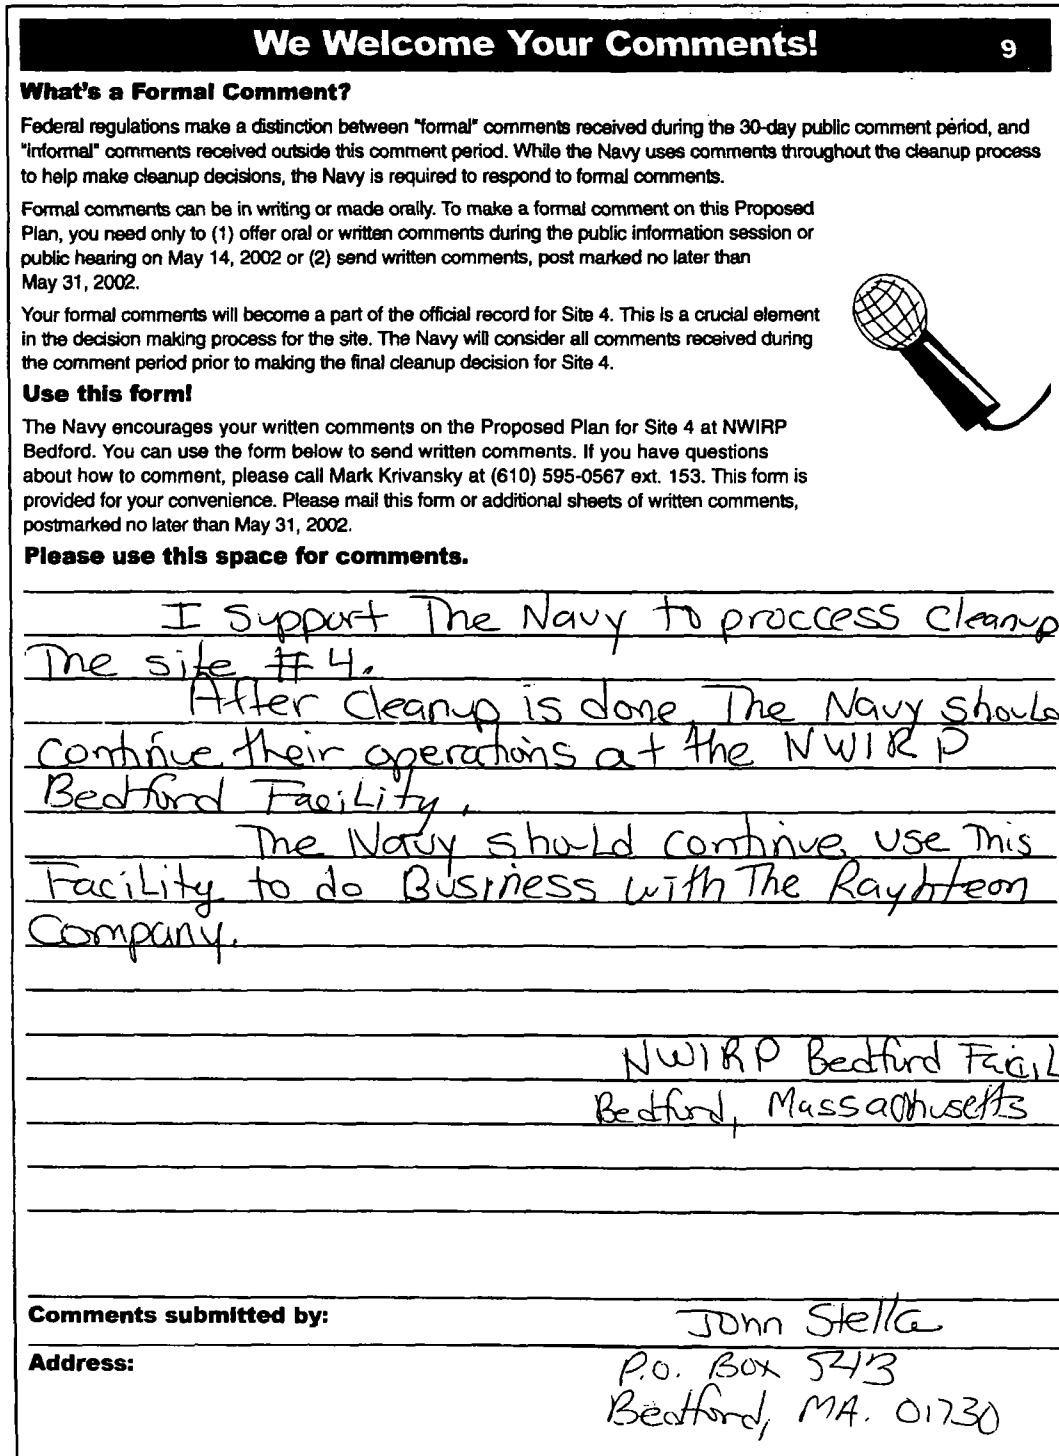 We Welcome Your Comments! 9
What's a Formal Comment?
Federal regulations make a distinction between "formal" comments received during the 30-day public comment period, and
"informal" comments received outside this comment period. While the Navy uses comments throughout the cleanup process
to help make cleanup decisions, the Navy is required to respond to formal comments.
Formal comments can be in writing or made orally. To make a formal comment on this Proposed
Plan, you need only to (1) offer oral or written comments during the public information session or
public hearing on May 14, 2002 or (2) send written comments, post marked no later than
May 31, 2002.
Your formal comments will become a part of the official record for Site 4. This is a crucial element
in the decision making process for the site. The Navy will consider all comments received during
the comment period prior to making the final cleanup decision for Site 4.
Use this form!
The Navy encourages your written comments on the Proposed Plan for Site 4 at NWIRP
Bedford. You can use the form below to send written comments. If you have questions
about how to comment, please call Mark Krivansky at (610) 595-0567 ext. 153. This form is
provided for your convenience. Please mail this form or additional sheets of written comments,
postmarked no later than May 31, 2002.
Please use this space for comments.
I support The Navy to proccess cleanup
The site # 4.
After cleanup is done, The Navy should
continue their operations at the NWIRP
Bedford Facility.
The Navy should continue use This
Facility to do Business with The Rayhteon
Company.
NWIRP Bedford Facil
Bedford, Massachusetts
Comments submitted by: John Stella
Address: P.O. Box 543
Bedford, MA. 01730